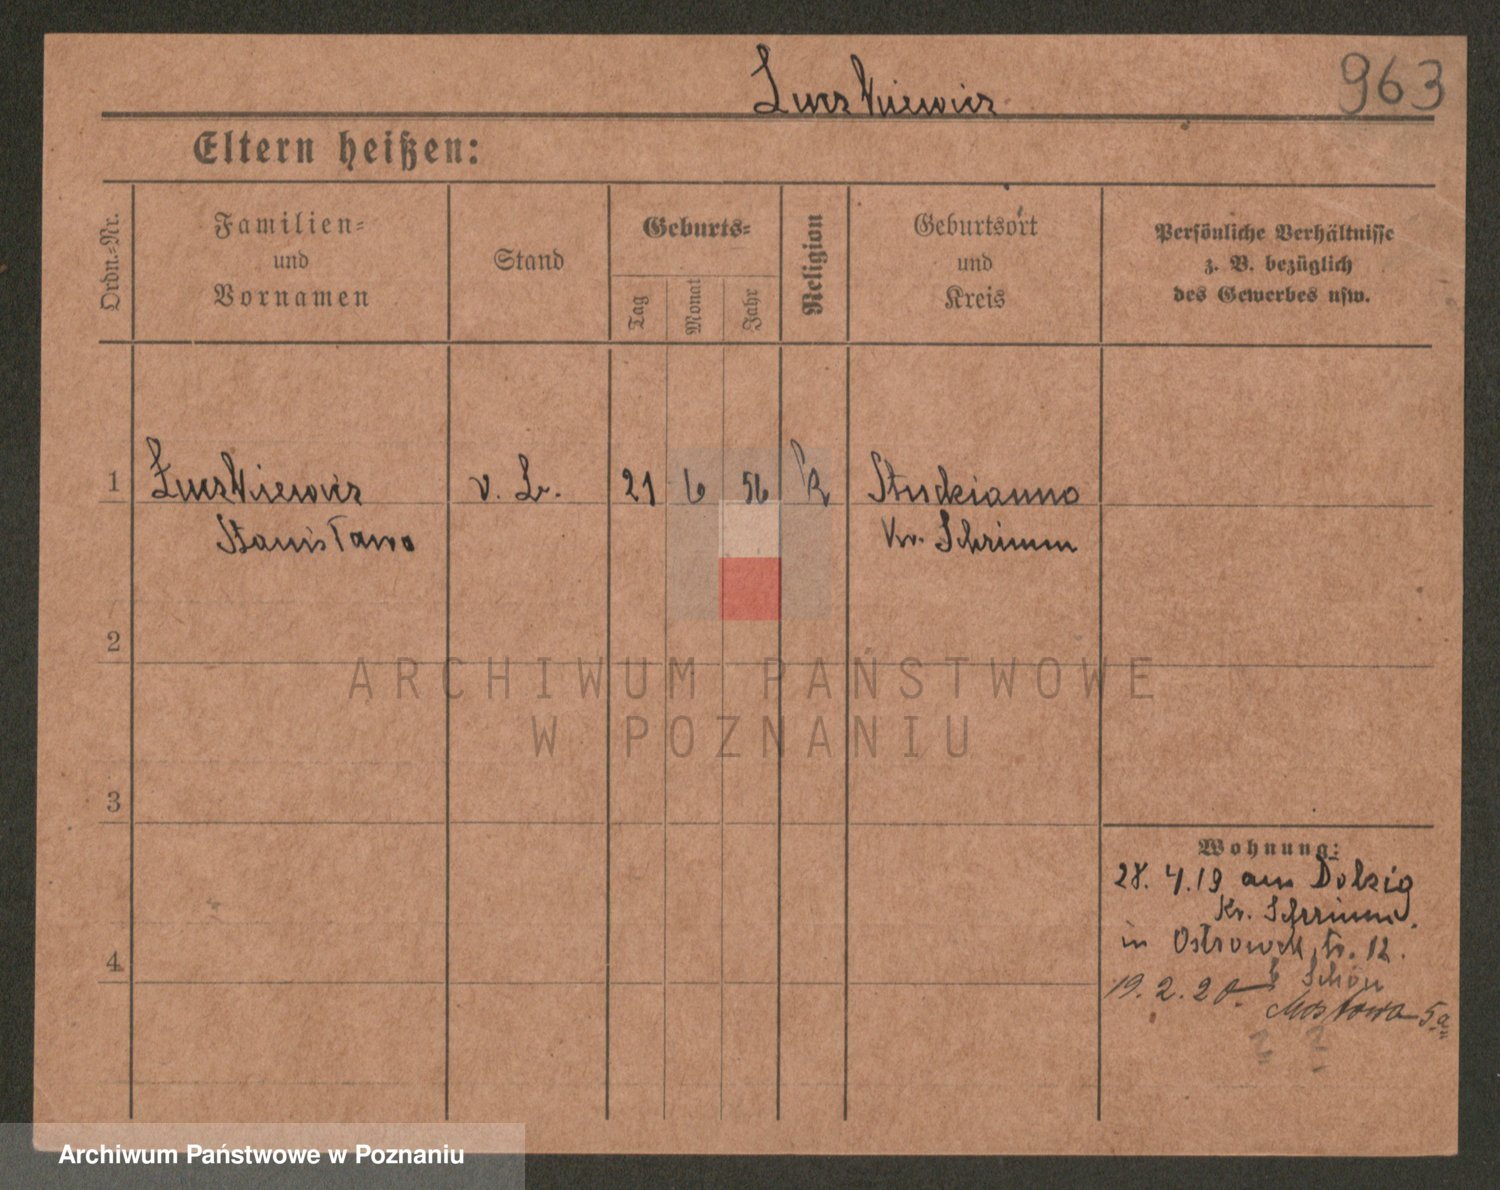 963
Eltern heißen:
Ordn.-Nr.
Familien-
und
Vornamen
Stand
Geburts-
Tag
Monat
Jahr
Religion
Geburtsort
und
Kreis
Persönliche Verhältnisse
z. B. bezüglich
des Gewerbes usw.
1
v. L. 21 6 56 k
Stanisława
Kr. Schrimm
2
ARCHIWUM PAŃSTWOWE
W POZNANIU
3
Wohnung:
28. 4. 19 aus Dolzig
Kr. Schrimm.
in Ostrowek 12.
b Schön
19. 2. 20. Mostowa 5a
4
Archiwum Państwowe w Poznaniu